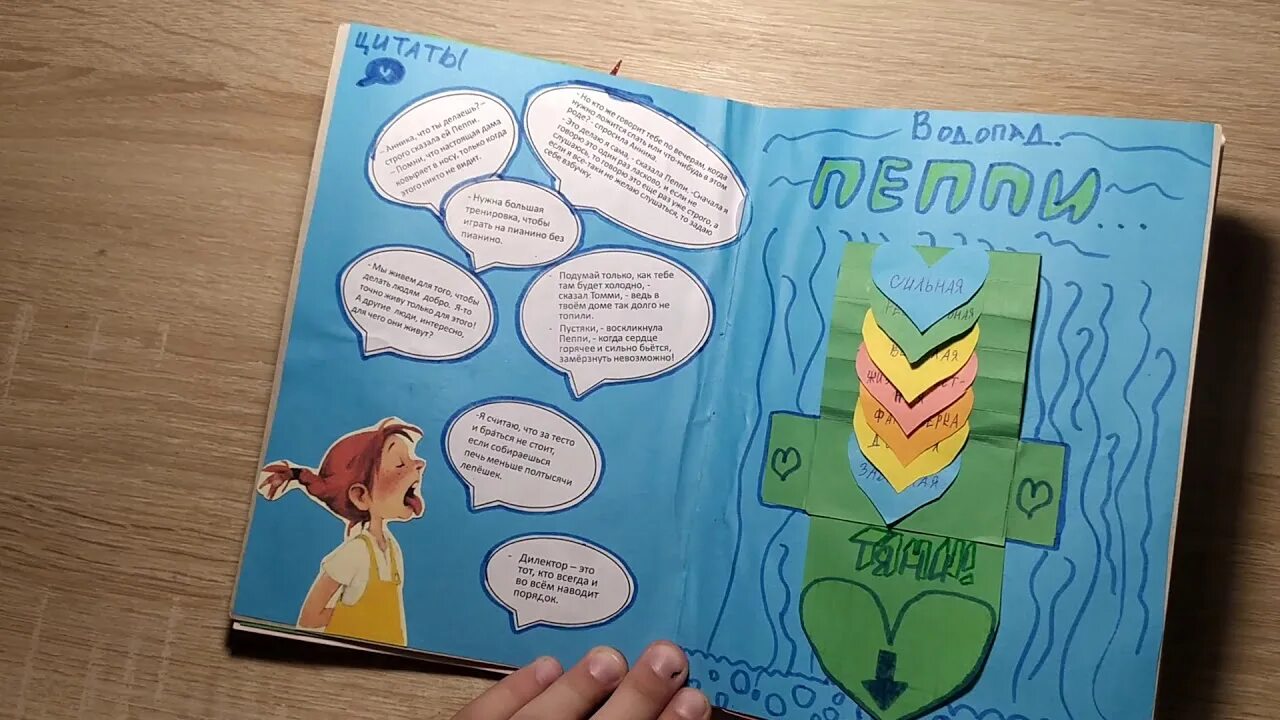 ЦИТАТЫ
- Анника, что ты делаешь? –
строго сказала ей Пеппи.
– Помни, что настоящая дама
ковыряет в носу, только когда
этого никто не видит.
- Но кто же говорит тебе по вечерам, когда
нужно ложится спать или что-нибудь в этом
роде? - спросила Анника.
- Это делаю я сама, - сказала Пеппи. -Сначала я
говорю это один раз ласково, и если не
слушаюсь, то говорю это еще раз уже строго, а
если я все-таки не желаю слушаться, то задаю
себе взбучку.
- Нужна большая
тренировка, чтобы
играть на пианино без
пианино.
- Мы живем для того, чтобы
делать людям добро. Я-то
точно живу только для этого!
А другие люди, интересно,
для чего они живут?
- Подумай только, как тебе
там будет холодно, -
сказал Томми, - ведь в
твоём доме так долго не
топили.
- Пустяки, - воскликнула
Пеппи, - когда сердце
горячее и сильно бьётся,
замёрзнуть невозможно!
-Я считаю, что за тесто
и браться не стоит,
если собираешься
печь меньше полтысячи
лепёшек.
- Дилектор – это
тот, кто всегда и
во всём наводит
порядок.
Водопад.
ПЕППИ...
СИЛЬНАЯ
ТЯНИ!